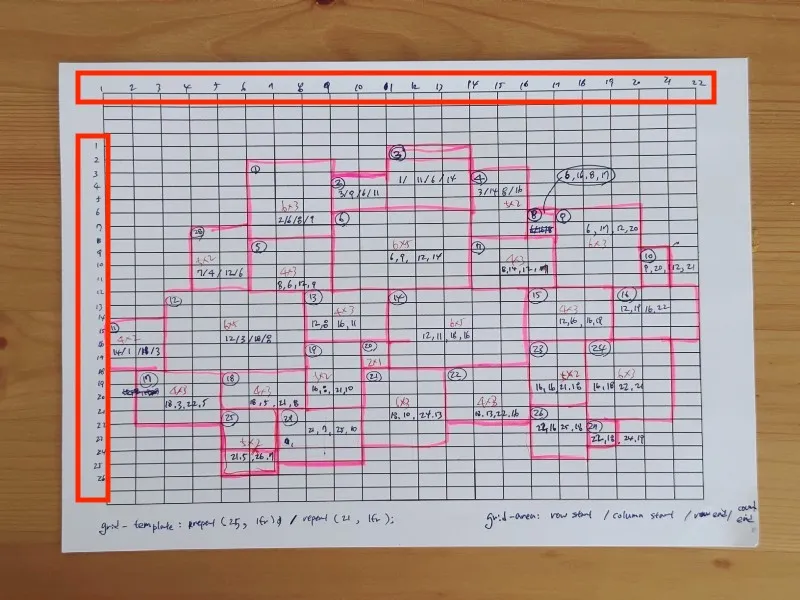 1 2 3 4 5 6 7 8 9 10 11 12 13 14 15 16 17 18 19 20 21 22
1
2
3
4
5
6
7
8
9
10
11
12
13
14
15
16
17
18
19
20
21
22
23
24
25
26
①
6x3
2/6/8/9
②
3/9/6/11
③
1/ 11/6/14
④
3/14 8/16
6, 16, 8, 17
⑧
⑨
6, 17, 12, 20
6x3
⑥
6x5
6, 9, 12, 14
⑤
4x3
8, 6, 12, 9
7/4/12/6
4x3
8, 14, 12, 17
⑩
9, 20, 12, 21
⑪
4x2
14/1 /18/3
⑫
6x5
12/3/18/8
⑬
4x3
12, 8 16, 11
⑭
6x5
12, 11, 18, 16
⑮
4x3
12, 16, 16, 19
⑯
12, 19 16, 22
⑰
4x3
18, 3, 22, 5
⑱
4x3
18, 5, 21, 8
⑲
16, 8, 21, 10
⑳
2x1
㉑
18, 10, 24, 13
㉒
4x3
18, 13, 22, 16
㉓
16, 16, 21, 18
㉔
6x3
16, 18, 22, 21
㉕
21, 5, 26, 7
21, 7, 25, 10
㉖
22, 18, 24, 19
grid-template: repeat (25, 1fr) / repeat (21, 1fr);
grid-area: row start / column start / row end /
end